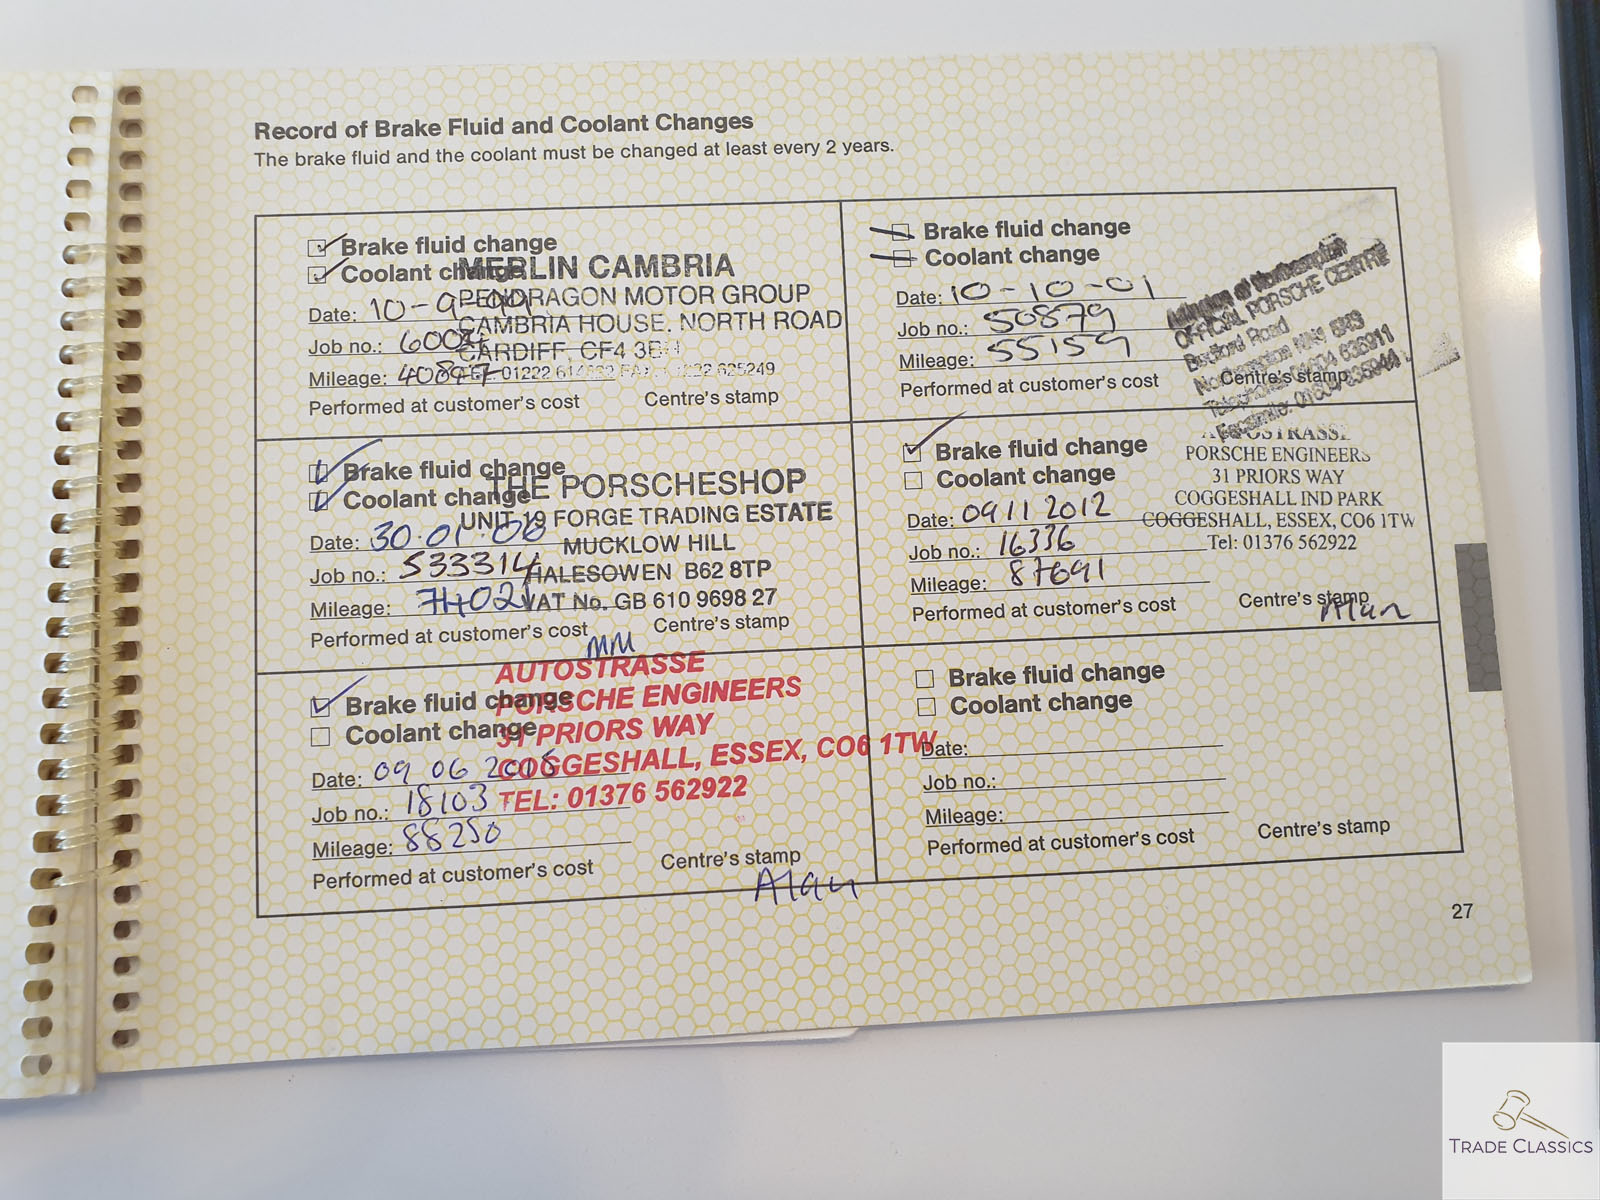 Record of Brake Fluid and Coolant Changes
The brake fluid and the coolant must be changed at least every 2 years.
Brake fluid change
Coolant change
MERLIN CAMBRIA
PENDRAGON MOTOR GROUP
CAMBRIA HOUSE. NORTH ROAD
CARDIFF, CF4
Date: 10-9-99
Job no.: 6004
Mileage: 40897
01222 FAX 625249
Performed at customer's cost
Centre's stamp
Brake fluid change
Coolant change
Date: 10-10-01
Job no.: 50879
Mileage: 55159
Performed at customer's cost
Centre's stamp
OFFICIAL PORSCHE CENTRE
Bedford Road
Northampton NN4
Telephone: 01604
Facsimile: 01604
Brake fluid change
Coolant change
THE PORSCHESHOP
UNIT 19 FORGE TRADING ESTATE
MUCKLOW HILL
HALESOWEN B62 8TP
VAT No. GB 610 9698 27
Date: 30.01.06
Job no.: 533314
Mileage: 74021
Performed at customer's cost
Centre's stamp
MM
Brake fluid change
Coolant change
PORSCHE ENGINEERS
31 PRIORS WAY
COGGESHALL IND PARK
COGGESHALL, ESSEX, CO6 1TW
Tel: 01376 562922
Date: 09 11 2012
Job no.: 16336
Mileage: 87691
Performed at customer's cost
Centre's stamp
Alan
AUTOSTRASSE
PORSCHE ENGINEERS
31 PRIORS WAY
COGGESHALL, ESSEX, CO6 1TW
TEL: 01376 562922
Brake fluid change
Coolant change
Date: 09 06
Job no.: 18103
Mileage: 88250
Performed at customer's cost
Centre's stamp
Alan
Brake fluid change
Coolant change
Date:
Job no.:
Mileage:
Performed at customer's cost
Centre's stamp
27
TRADE CLASSICS